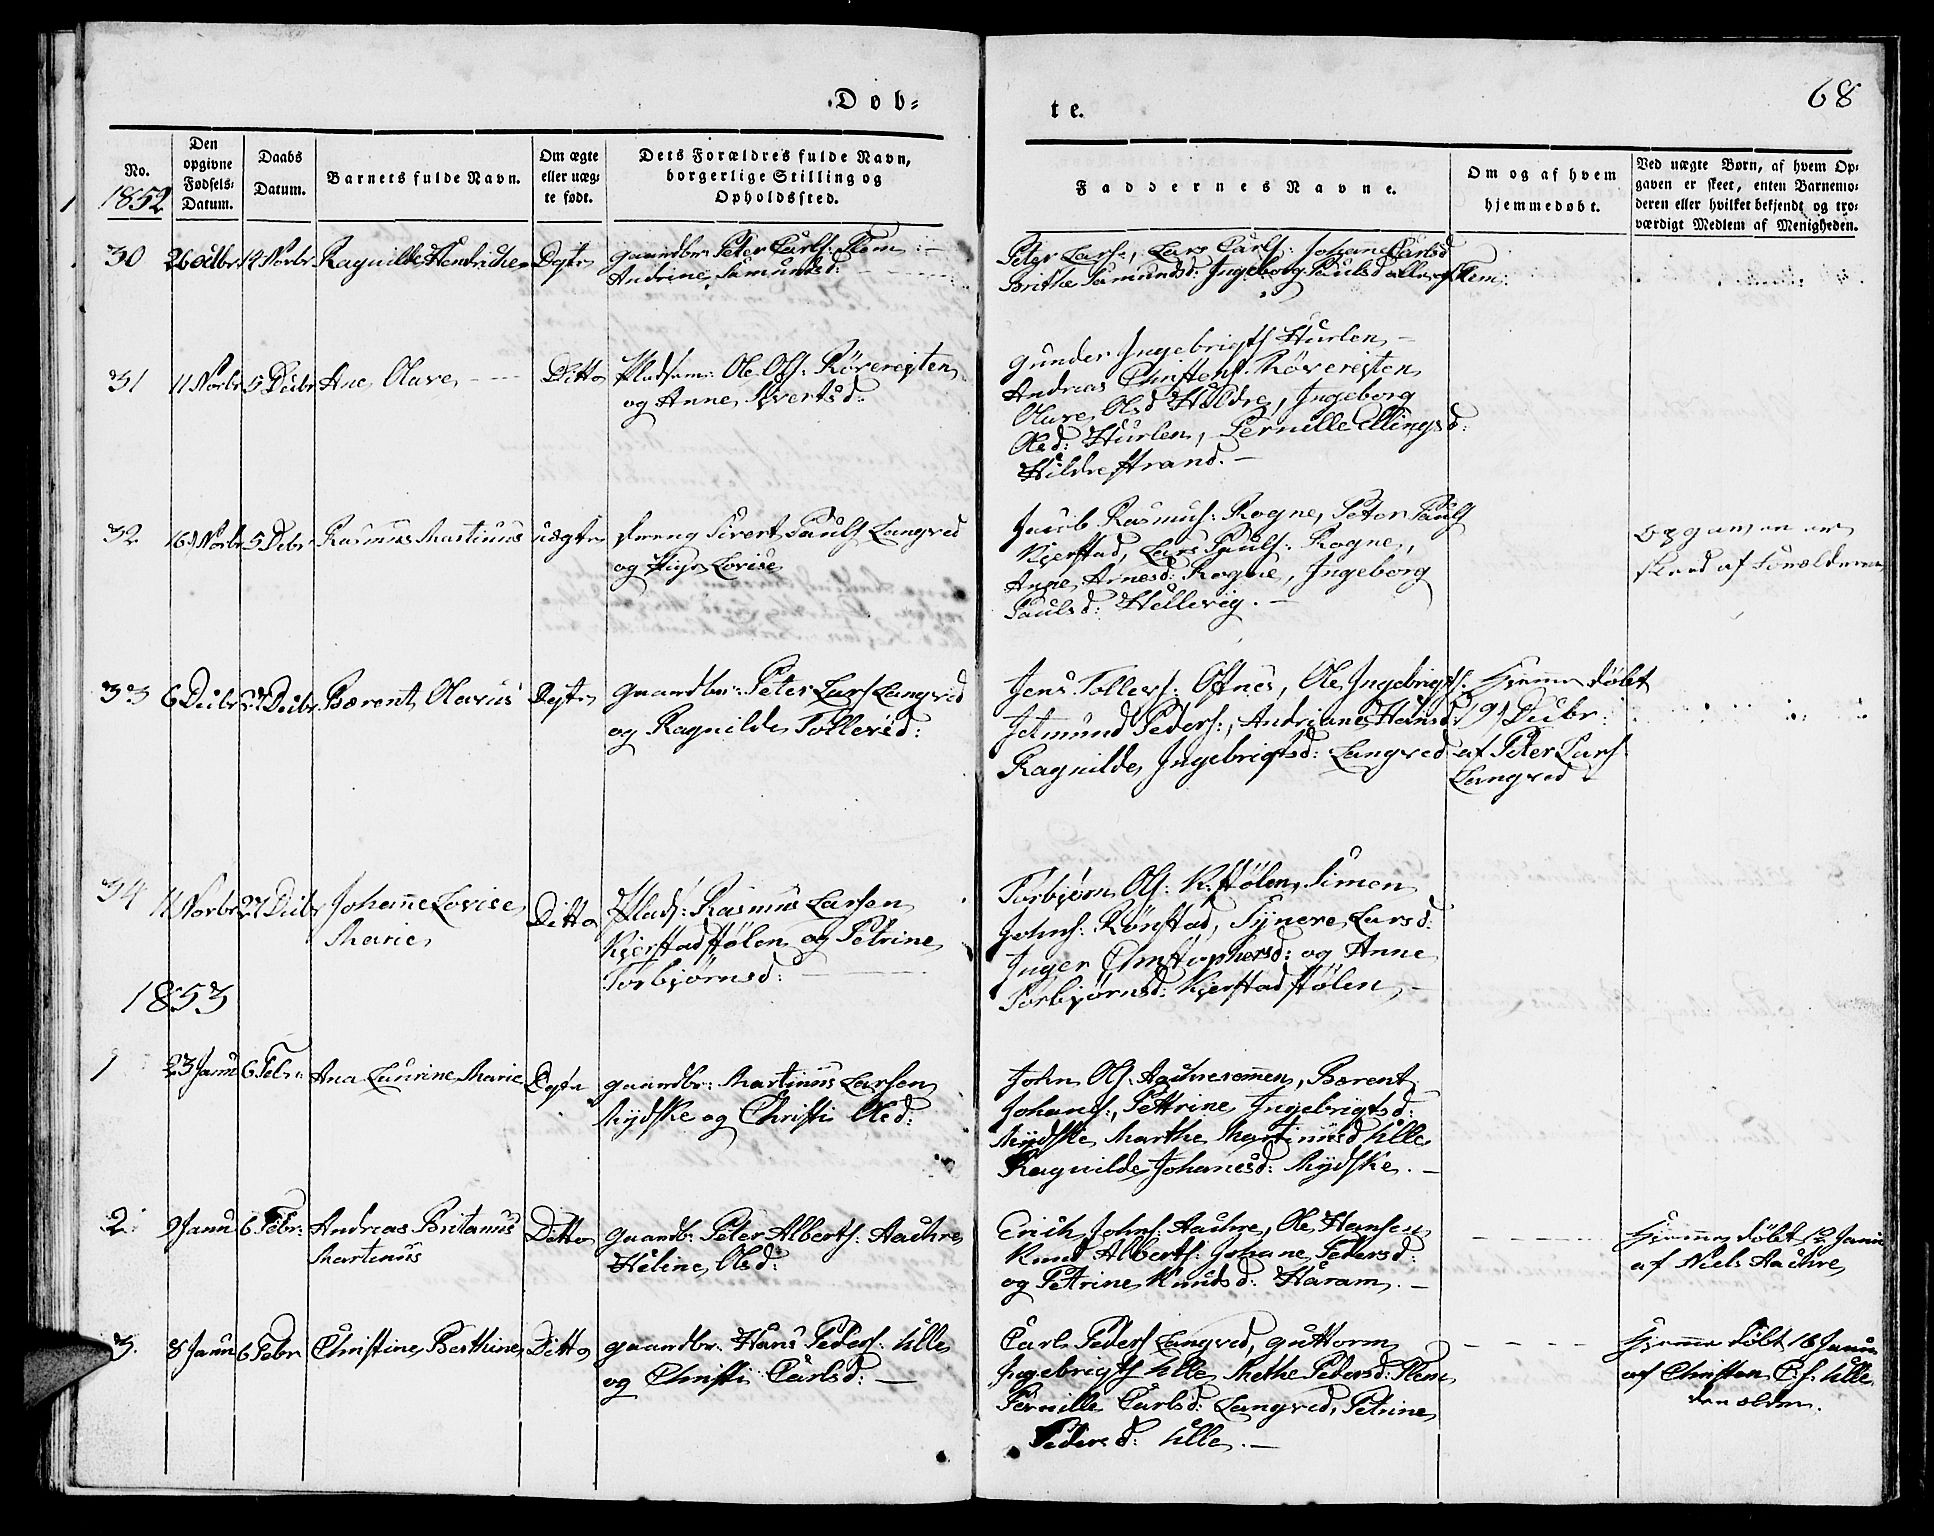 Døb-
te.
68
No.
1852
Den
opgivne
Fødsels-
Datum.
Daabs
Datum.
Barnets fulde Navn.
Om ægte
eller uæg-
te født.
Dets Forældres fulde Navn,
borgerlige Stilling og
Opholdssted.
Faddernes Navne.
Om og af hvem
hjemmedøbt.
Ved uægte Børn, af hvem Op-
gaven er skeet, enten Barnemo-
deren eller hvilket bekjendt og tro-
værdigt Medlem af Menigheden.
30 26 Octbr 14 Novbr Ragnilde Hendrikke Ægte
gaardbr: Peter Carls: Flem
Andrine Samundsd:
Peter Lars:, Lars Carls: Johane Carlsd
Brithe Samundsd: Ingeborg Paulsd alle af Flem:
31 11 Novbr 5 Decbr Ane Olave Ditto
Pladsm: Ole Ols: Röverejten
og Anne Syvertsd:
gunder Ingebrigts Hurlen,
Andreas Christens: Röverejten
Olave Olsd Hildre, Ingeborg
Olsd: Hurlen, Pernille Ellingsd:
Hildrestrand.
32 16 Novbr 5 Debr Rasmus Martinus uægte
dreng Sivert Pauls Langved
og Lovise
Jacob Rasmus: Rogne, Peter Pauls
Kjerstad, Lars Pauls: Rogne,
Anne Arnesd: Rogne, Ingeborg
Paulsd: Hellevig.
Opgaven er
skeed af Forældrene
33 6 Decbr 27 Decbr Bærent Olarius Ægte
gaardbr: Peter Lars Langved
og Ragnilde Tollevsd:
Jens Tollevs: Ostnes, Ole Ingebrigts:
Jetmund Peders:, Andriane Hansd:
Ragnilde Ingebrigtsd: Langved
Hjemmedøbt
19 Decbr:
af Peter Lars
Langved
34 11 Novbr 27 Decbr Johanne Lovise
Marie
Ditto
Plads: Rasmus Larsen
Kjerstadstølen og Petrine
Torbjørnsd:
Torbjørn Ols: K.stølen, Simen
Johns: Rönstad, Synere Larsd:
Inger Christophersd: og Anne
Torbjørnsd: Kjerstadstølen,
1853
1 23 Janu 6 Febr: Ana Laurine Marie Ægte
gaardbr: Martinus Larsen
Mydske og Christi Olsd:
John Ols: Aachreremen, Bærent
Johans:, Pettrine Ingebrigtsd:
Mydske, Marthe Martinusd Ulle
Ragnilde Johanesd: Mydske.
2. 9 Janu 6 Febr: Andreas Britanus
Martinus
Ditto
gaardb: Peter Alberts: Aachre
Heline Olsd:
Erich Johns: Aachre, Ole Hansen
Knud Alberts: Johane Pedersd:
og Petrine Knudsd: Haram.
Hjemmedøbt 12 Janu
af Niels Aachre
3. 8 Janu 6 Febr Christine Berthine Ditto
gaardbr: Hans Peders: Ulle
og Christi Carlsd:
Carl Peders Langved, Guttorm
Ingebrigts Ulle, Methe Pedersd: Flem
Pernille Carlsd: Langved, Petrine
Pedersd: Ulle.
Hjemmedøbt 16 Janu
af Christen Ulle
den ældre.